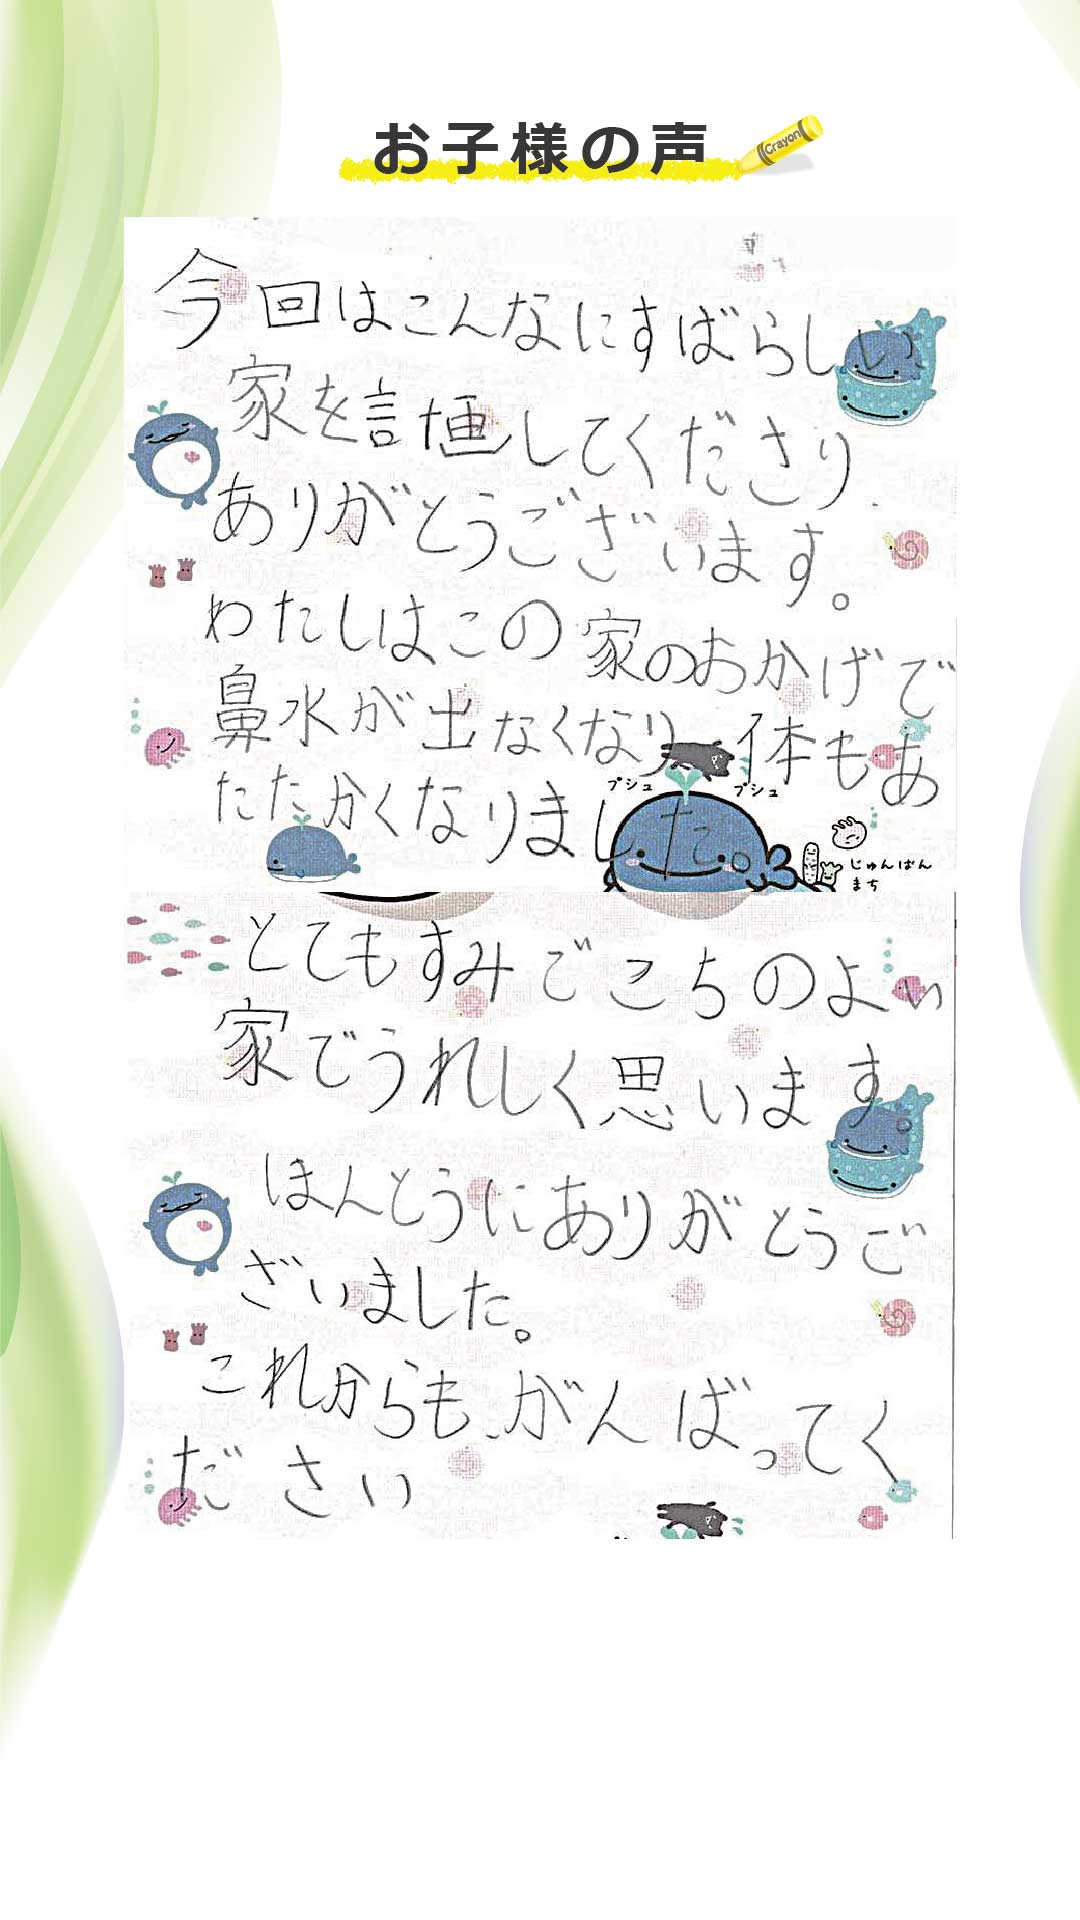 お子様の声
Crayon
今回はこんなにすばらしい
家を計画してくださり
ありがとうございます。
わたしはこの家のおかげで
鼻水が出なくなり 体もあ
たたかくなりました。
プシュ プシュ
じゅんばん
まち
とてもすみごこちのよい
家でうれしく思います。
ほんとうにありがとうご
ざいました。
これからも、がんばってく
ださい